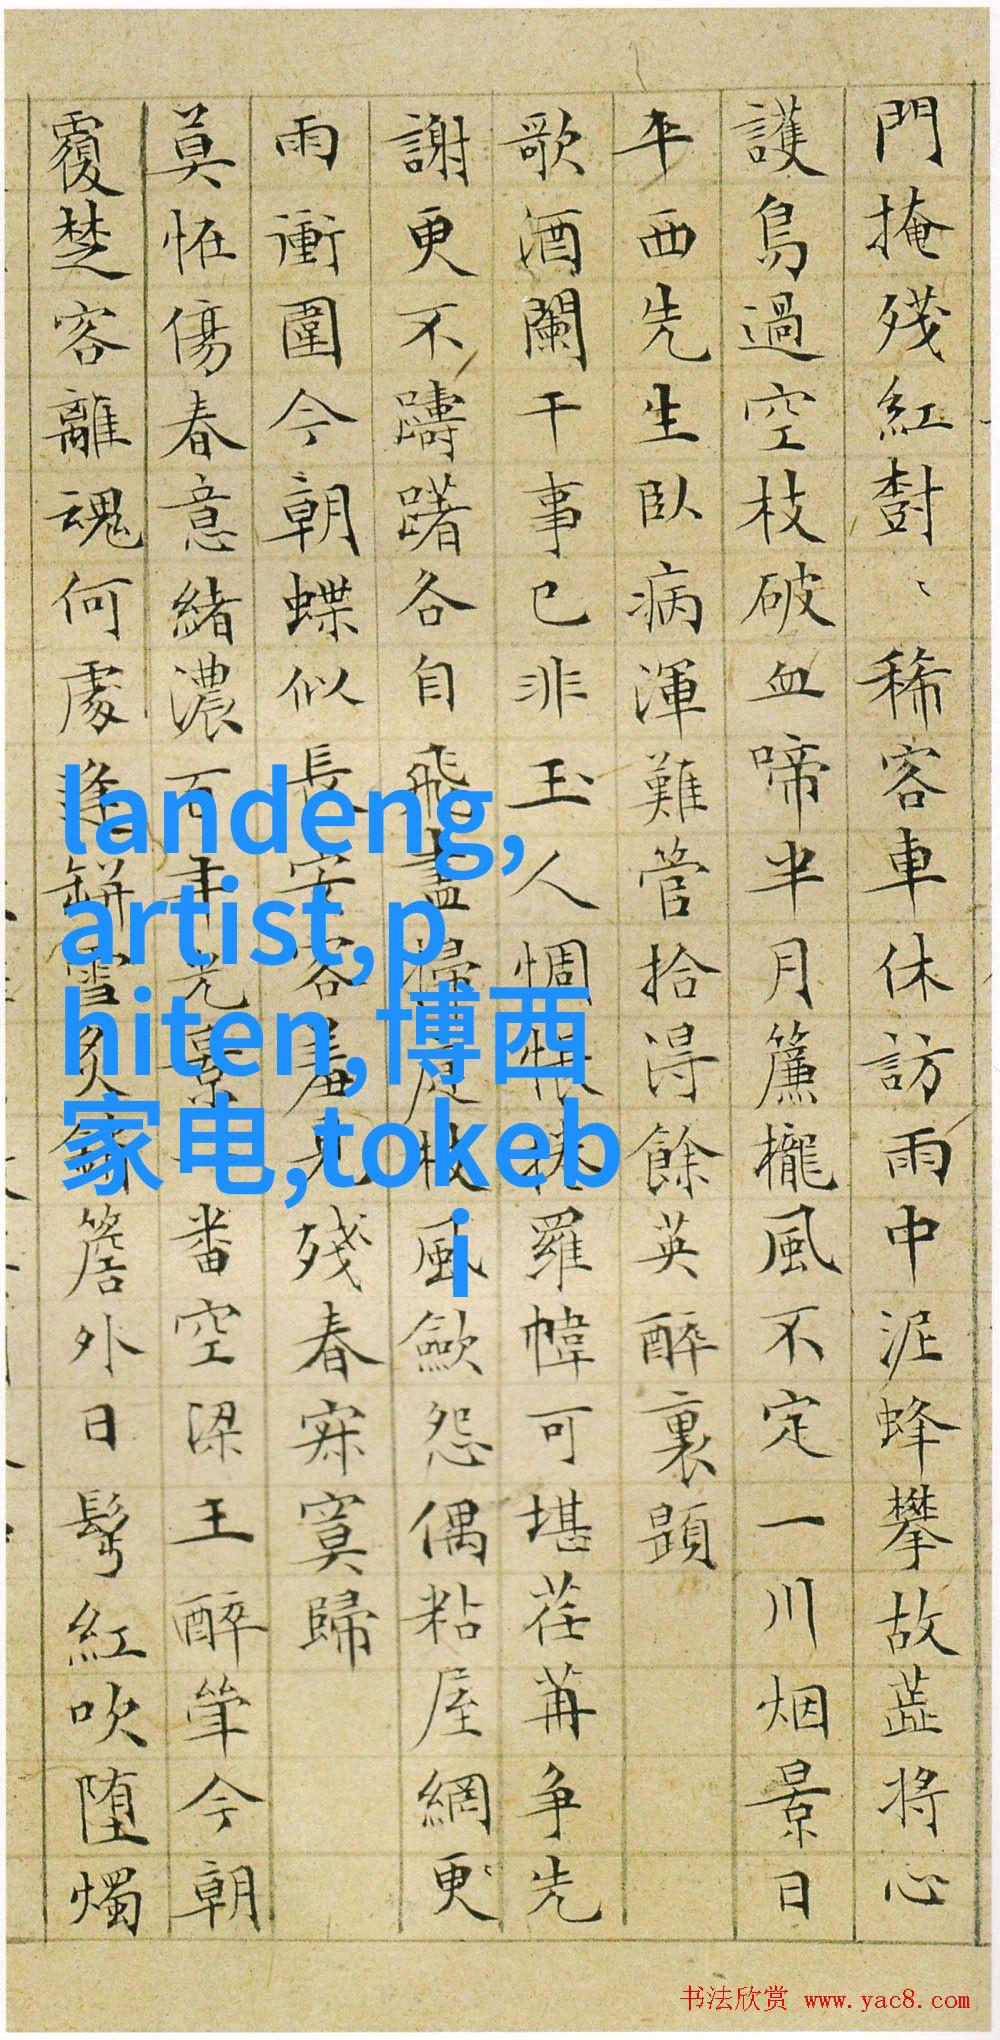 門掩殘紅樹、稀客車休訪雨中泥蜂攀故蕋將心
護鳥過空枝破血啼半月簾櫳風不定一川烟景日
平西先生臥病渾難管拾得餘英醉裏顕
歌酒闌干事已非玉人惆悵捲羅幃可堪荏苒争先
謝更不躊躇各自飛盡掃庭枝風歛怨偶粘屋網更
雨衝圍今朝蝶似長安客羞見殘春寂寞歸
莫怪傷春意緒濃百年光景一番空梁王醉筆今朝
覆楚客離魂何處逢鉼雪炙簷外日髩紅吹堕燭
landeng,
artist,p
hiten,博西
家电,tokeb
i
书法欣赏 www.yac8.com